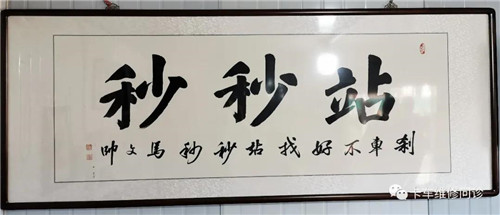 站秒秒
刹車不好找站秒秒馬文帥
卡车维修问诊